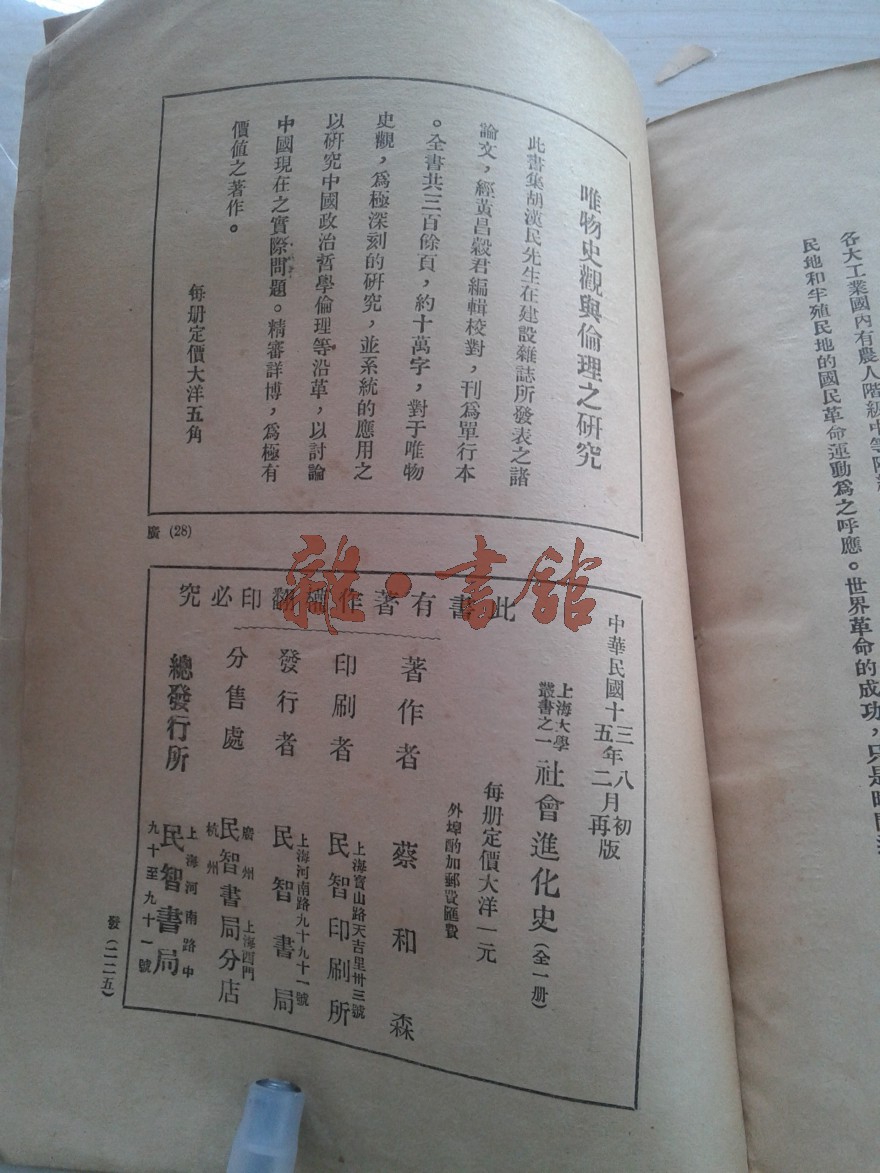 唯物史觀與倫理之研究
此書集胡漢民先生在建設雜誌所發表之諸
論文，經黃昌穀君編輯校對，刊爲單行本
。全書共三百餘頁，約十萬字，對于唯物
史觀，爲極深刻的研究，並系統的應用之
以研究中國政治哲學倫理等沿革，以討論
中國現在之實際問題。精審詳博，爲極有
價值之著作。
每册定價大洋五角
廣 (28)
此書有著作權翻印必究
中華民國十三年八月初版
十五年二月再版
上海大學叢書之一
社會進化史（全一册）
每册定價大洋一元
外埠酌加郵費匯費
著作者 蔡和森
印刷者 上海寶山路天吉里卅三號 民智印刷所
發行者 上海河南路九十九十一號 民智書局
分售處 廣州 上海西門 杭州 民智書局分店
總發行所 上海河南路中 九十至九十一號 民智書局
發（二二五）
雜·書館
各大工業國內有農人階級中等階
民地和半殖民地的國民革命運動爲之呼應。世界革命的成功，只是時間